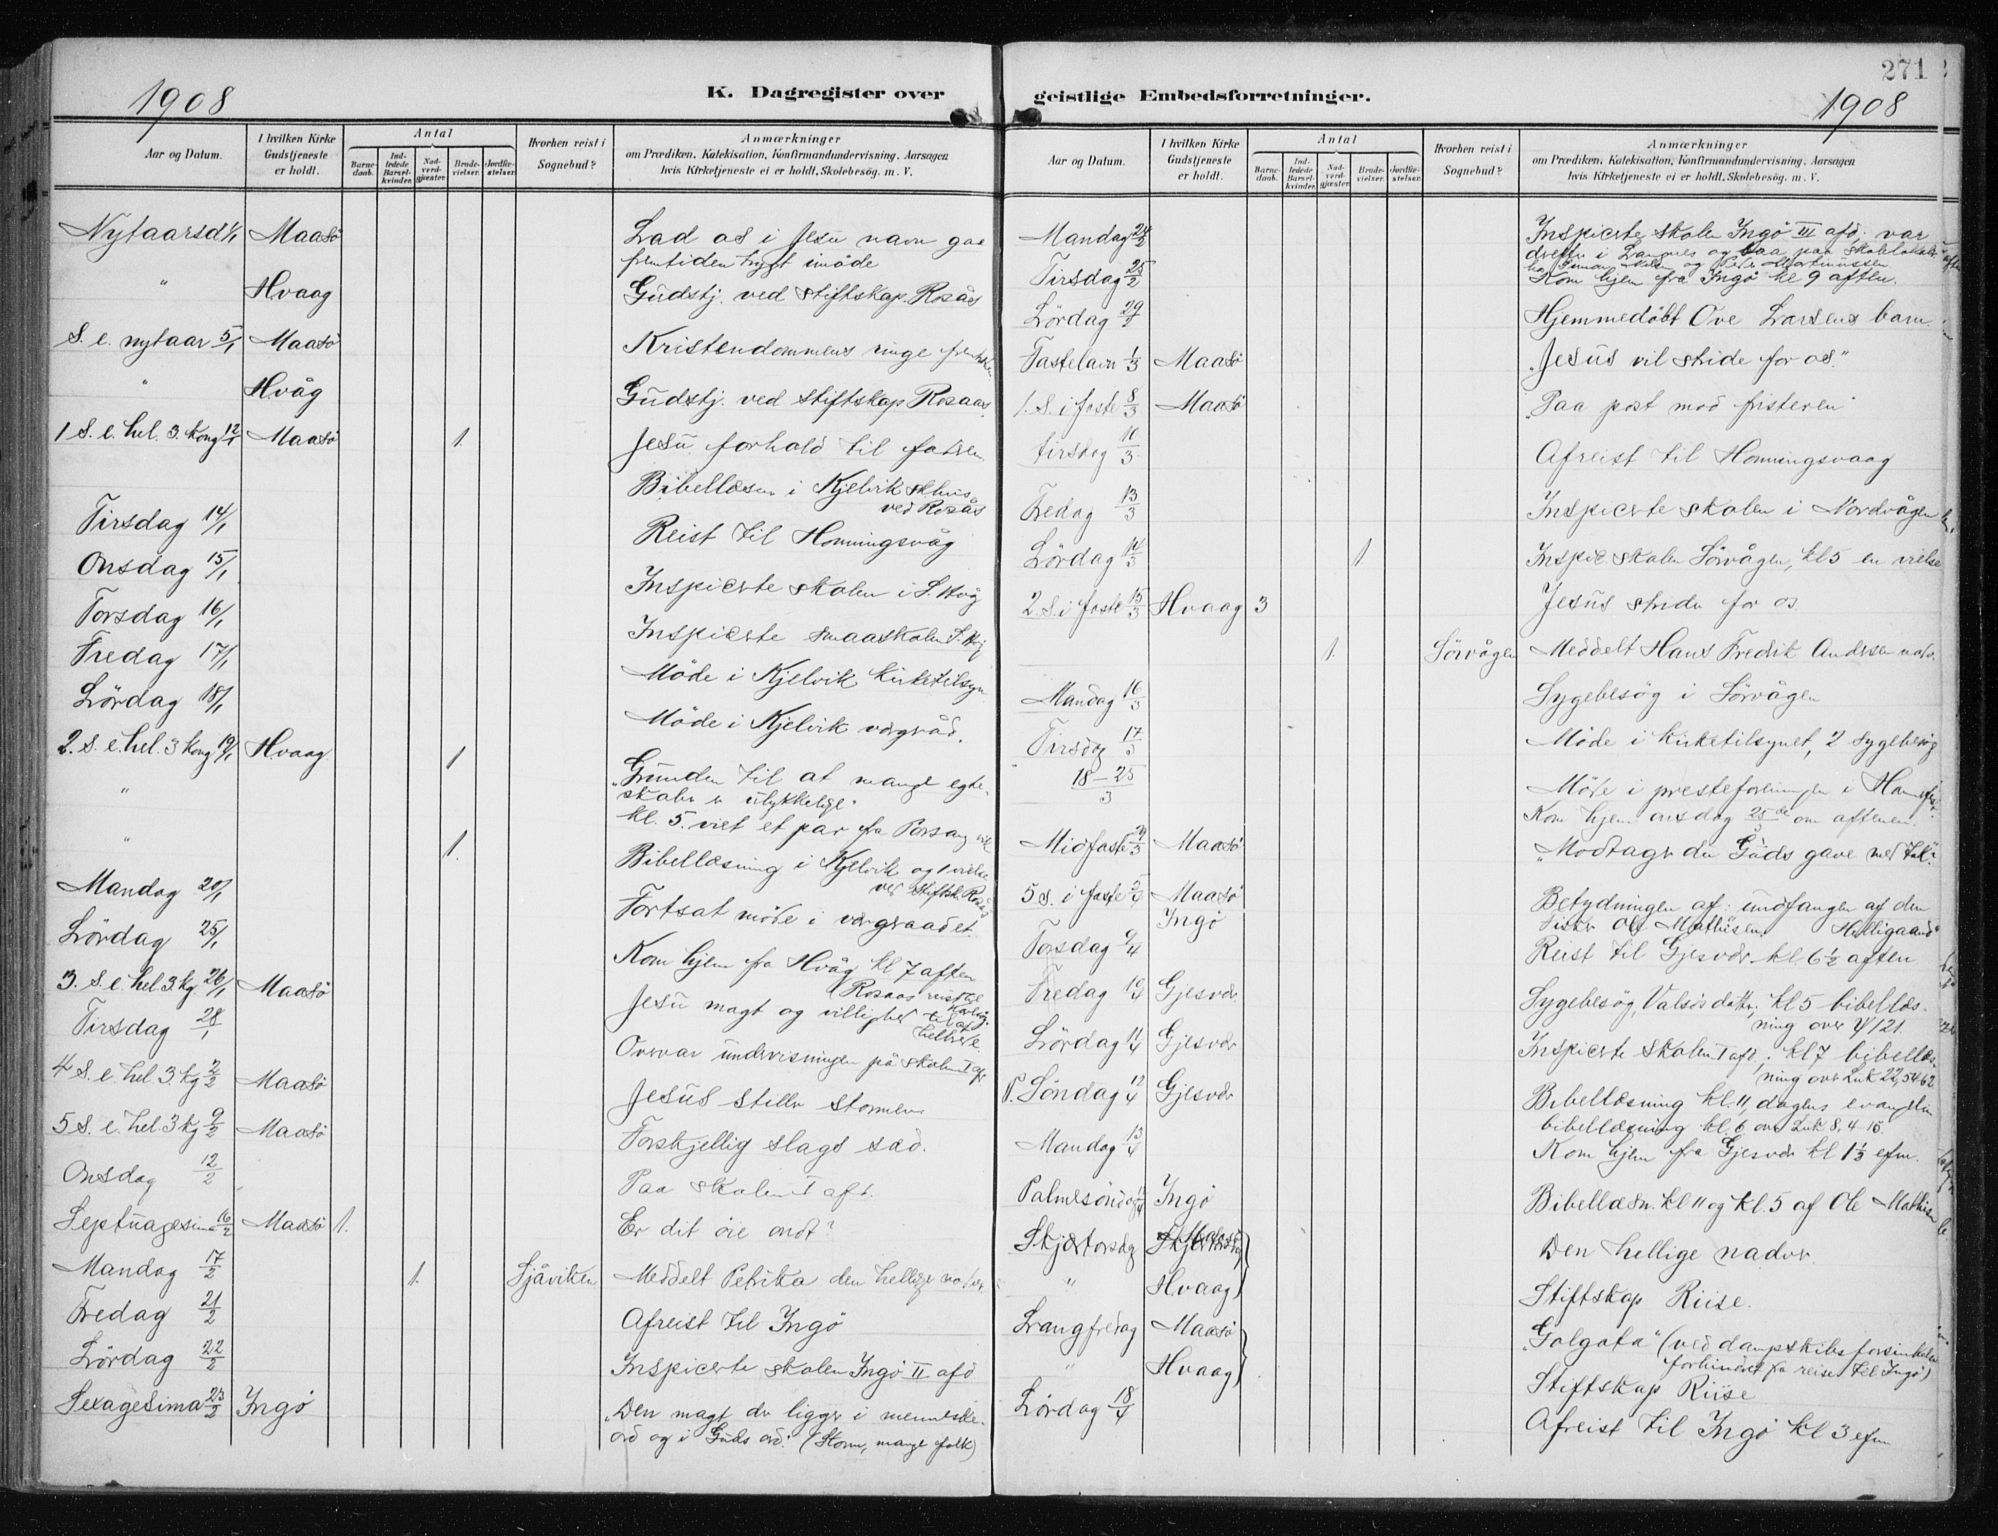 271
1908
K. Dagregister over
geistlige Embedsforretninger.
1908
Aar og Datum.
I hvilken Kirke Gudstjeneste er holdt.
Antal
Barnedaab.
Indledede Barselkvinder.
Nadverdgjæster.
Brudevielser.
Jordfæstelser.
Hvorhen reist i Sognebud?
Anmærkninger
om Prædiken, Katekisation, Konfirmandundervisning, Aarsagen
hvis Kirketjeneste ei er holdt, Skolebesøg. m. V.
Nytaarsd 1/1 Maasö Lad os i Jesu navn gaa
fremtiden trygt imöde
" Hvaag Gudstj. ved stiftskap. Rosås
S. e. nytaar 5/1 Maasö Kristendommens ringe
" Hvåg Gudstj. ved stiftskap Rosaas
1 S. e. hel. 3. Kong 12/1 Maasö 1. Jesu forhold til fatren
Bibellæsn i Kjelvik skhus
ved Rosås
Tirsdag 14/1 Reist til Honningsvåg
Onsdag 15/1 Inspicerte skolen i S. Våg
Torsdag 16/1 Inspicerte smaaskolen S. Våg
Fredag 17/1 Möde i Kjelvik kirketilsyn
Lördag 18/1 Möde i Kjelvik vergråd.
2. S. e. hel. 3 Kong 19/1 Hvaag 1 "Grunden til at mange egte-
skaber er ulykkelige.
" kl. 5. viet et par fra Porsang
" 1. Bibellæsning i Kjelvik og 1 vielse
ved Stiftsk. Rosås
Mandag 20/1 Fortsat möte i vergraadet.
Lördag 25/1 Kom hjem fra Hvåg kl 7 aften
3. S. e. hel. 3. Kg. 26/1 Maasö Jesu magt og villighed til at
helbrede.
Tirsdag 28/1 Overvar undervisningen på skolen I afd
4 S. e. hel. 3. Kg 2/2 Maasö Jesus stiller stormen
5 S. e. hel. 3 Kg 9/2 Maasö Forskjellig slags sæd.
Onsdag 12/2 Paa skolen I afd.
Septuagesima 16/2 Maasö 1. Er dit öie ondt?
Mandag 17/2 1. Sjåviken Meddelt Petrika den hellige nadver
Fredag 21/2 Afreist til Ingö
Lördag 22/2 Inspicerte skolen Ingö II afd
Sexagesima 23/2 Ingö "Den magt der ligger i menneske-
ord og i Guds ord." (Storm, mange folk)
Aar og Datum.
I hvilken Kirke Gudstjeneste er holdt.
Antal
Barnedaab.
Indledede Barselkvinder.
Nadverdgjæster.
Brudevielser.
Jordfæstelser.
Hvorhen reist i Sognebud?
Anmærkninger
om Prædiken, Katekisation, Konfirmandundervisning, Aarsagen
hvis Kirketjeneste ei er holdt, Skolebesøg. m. V.
Mandag 24/2 Inspicerte skolen Ingö III afd; var
Tirsdag 25/2 Kom hjem fra Ingö kl 9 aften.
Lördag 29/2 Hjemmedöbt Ove Larsens barn.
Fastelavn 1/3 Maasö "Jesus vil stride for os."
1. S. i faste 8/3 Maasö "Paa post mod fristeren"
tirsdag 10/3 Afreist til Honningsvaag
Fredag 13/3 Inspicerte skolen i Nordvågen
Lördag 14/3 1 Inspic skolen Sörvågen, kl 5 en vielse
2. S. i faste 15/3 Hvaag 3 Jesus strider for os.
1. Sörvågen Meddelt Hans Fredrik Andersen
Mandag 16/3 Sygebesög i Sörvågen
Tirsdag 17/3 Möde i kirketilsynet, 2 sygebesög
18-25/3 Möde i presteforeningen i
Kom hjem onsdag 25de/3 om aftenen.
Midfaste 29/3 Maasö "Modtager du Guds gave med
5 S. i faste 5/4 Maasö Betydningen af: undfangen af den
Helligaand"
Ingö Fisker Ole Mathisen.
Torsdag 9/4 Reist til Gjesvær kl. 6½ aften
Fredag 10/4 Gjesvær Sygebesög, kl 5 bibellæs-
ning over 121.
Lördag 11/4 Gjesvær Inspicerte skolen I afd; kl 7 bibellæs-
ning over Luk 22,54-62
P. Söndag 12/4 Gjesvær Bibellæsning kl. 11, dagens evangelium
bibellæsning kl. 6 over Luk 8, 4-15.
Mandag 13/4 Kom hjem fra Gjesvær kl 1½ efm.
Palmesöndag Ingö Bibellæsn. kl 11 og kl. 5 af Ole Mathisen
Skjærtorsdag Maasö Den hellige nadver.
" Hvaag Stiftskap Riise.
Langfredag Maasö "Golgata" (ved dampskibsforsinkelse
forhindret fra reise til Ingö)
" Hvaag Stiftskap Riise
Lördag 18/4 Afreist til Ingö kl 3 efm